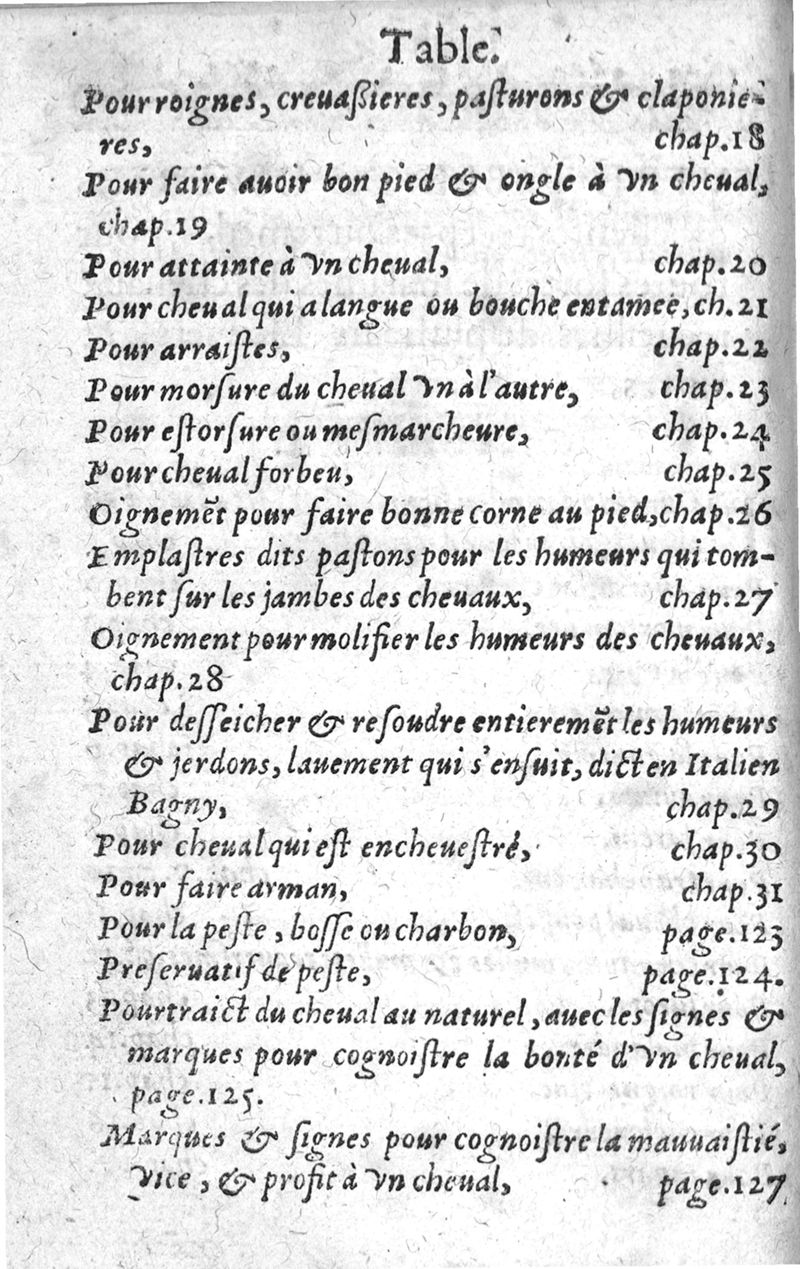 Table.
Pour roignes, creuaſſieres, paſturons & claponie-
res, chap.18
Pour faire auoir bon pied & ongle à vn cheual,
chap.19
Pour attainte à vn cheual, chap.20
Pour cheual qui a langue ou bouche entamee, ch.21
Pour arraiſtes, chap.22
Pour morſure du cheual vn à l'autre, chap.23
Pour eſtorſure ou meſmarcheure, chap.24
Pour cheual forbeu, chap.25
Oignemēt pour faire bonne corne au pied, chap.26
Emplaſtres dits paſtons pour les humeurs qui tom-
bent ſur les jambes des cheuaux, chap.27
Oignement pour molifier les humeurs des cheuaux,
chap.28
Pour deſſeicher & reſoudre entieremēt les humeurs
& jerdons, lauement qui s'enſuit, dict en Italien
Bagny, chap.29
Pour cheual qui eſt encheueſtré, chap.30
Pour faire arman, chap.31
Pour la peſte, boſſe ou charbon, page.123
Preſeruatif de peſte, page.124.
Pourtraict du cheual au naturel, auec les ſignes &
marques pour cognoiſtre la bonté d'vn cheual,
page.125.
Marques & ſignes pour cognoiſtre la mauuaiſtié,
vice, & profit à vn cheual, page.127